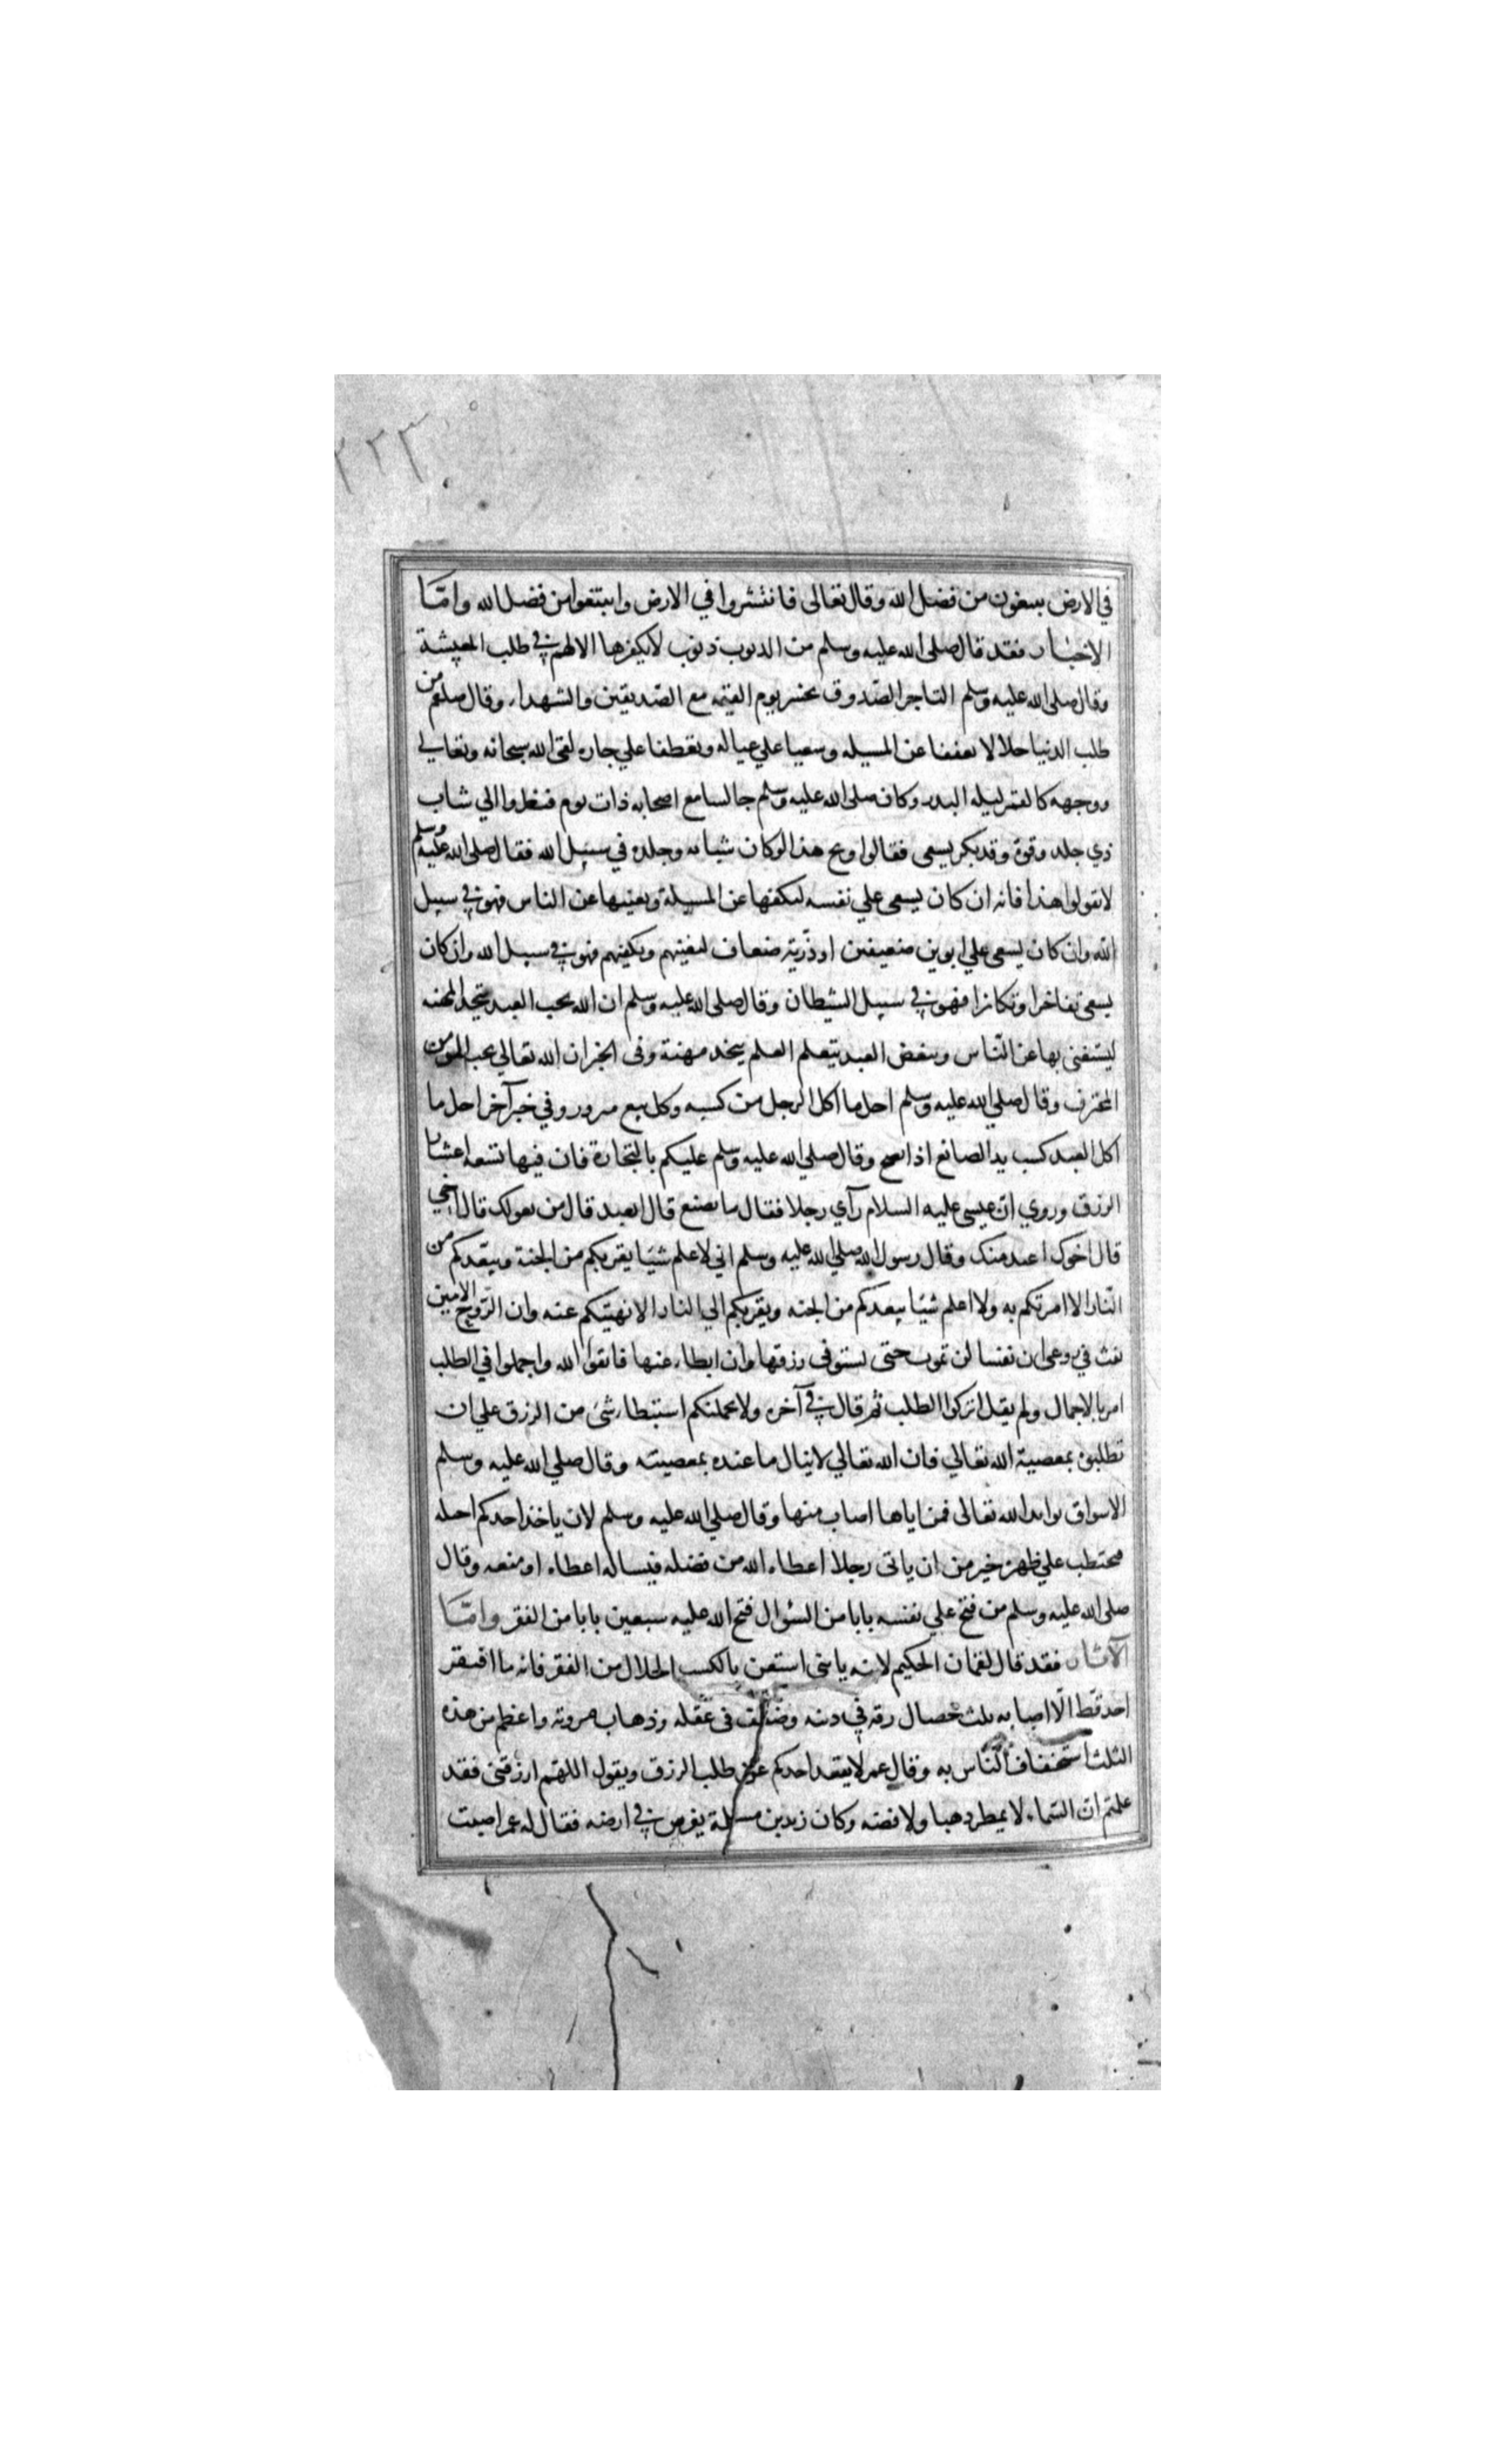 ٢٢٣
في الارض يبتغون من فضل الله وقال تعالى فانتشروا في الارض وابتغوا من فضل الله وامّا
الاخبار فقد قال صلى الله عليه وسلم من الذنوب ذنوب لا يكفرها الا الهم في طلب المعيشة
وقال صلى الله عليه وسلم التاجر الصدوق يحشر يوم القيمه مع الصّديقين والشهداء وقال صلعم من
طلب الدنيا حلالا تعففا عن المسيله وسعيا علي عياله وتعطفا علي جاره لقى الله سبحانه وتعالي
ووجهه كالقمر ليله البدر وكان صلى الله عليه وسلم جالسا مع اصحابه ذات يوم فنظروا الي شاب
ذي جلد وقوة وقد بكر يسعى فقالوا ويح هذا لوكان شبابه وجلده في سبيل الله فقال صلى الله عليه وسلم
لا تقولوا هذا فانه ان كان يسعى علي نفسه ليكفها عن المسيلة ويغنيها عن الناس فهو في سبيل
الله وان كان يسعى علي ابوين ضعيفين او ذّرية ضعاف ليغنيهم ويكفيهم فهو في سبيل الله وان كان
يسعى تفاخرا وتكاثرا فهو في سبيل الشيطان وقال صلى الله عليه وسلم ان الله يحب العبد يتخذ المهنه
ليستغنى بها عن النّاس ويبغض العبد يتعلم العلم يتخذ مهنة وفى الخبر ان الله تعالي يحب المومن
المحترف وقال صلي الله عليه وسلم احل ما اكل الرجل من كسبه وكل بيع مبرور وفي خبر آخر احل ما
اكل العبد كسب يد الصانع اذا نصح وقال صلي الله عليه وسلم عليكم بالتجارة فان فيها تسعه اعشار
الرزق وروي انّ عيسى عليه السلام رآي رجلا فقال ما تصنع قال اتعبد قال من يعولك قال اخي
قال اخوك اعبد منك وقال رسول الله صلي الله عليه وسلم اني لا علم شيئا يقربكم من الجنة ويبّعدكم من
النّار الا امرتكم به ولا اعلم شيئا يبعدكم من الجنه ويقربكم الي النار الا نهيتكم عنه وان الرّوح الامين
نفث في روعى ان نفسا لن تموت حتى تستوفى رزقها وان ابطاء عنها فاتقوا الله واجملوا في الطلب
امر بالاجمال ولم يقل اتركوا الطلب ثم قال في آخره ولا يحملنكم استبطا شئ من الرزق علي ان
تطلبوه بمعصية الله تعالي فان الله تعالي لا ينال ما عنده بمعصيته وقال صلي الله عليه وسلم
الاسواق موايد الله تعالى فمن اياها اصاب منها وقال صلي الله عليه وسلم لان ياخذ احدكم احبله
فيحتطب علي ظهره خير من ان ياتى رجلا اعطاه الله من فضله فيساله اعطاه او منعه وقال
صلى الله عليه وسلم من فتح علي نفسه بابا من السّؤال فتح الله عليه سبعين بابا من الفقر وامّا
الآثار فقد قال لقمان الحكيم لابنه يا بني استغن بالكسب الحلال من الفقر فانه ما افتقر
احد قطّ الّا اصابه ثلث خصال رقه في دينه وضعف فى عقله وذهاب مروته واعظم من هذه
الثلث استخفاف النّاس به وقال عمر لا يقعد احدكم عن طلب الرزق ويقول اللهّم ارزقنى فقد
علمتم ان السّماء لا يمطر ذهبا ولا فضه وكان زيد بن مسيلة يغرس في ارضه فقال له عمر اصبت